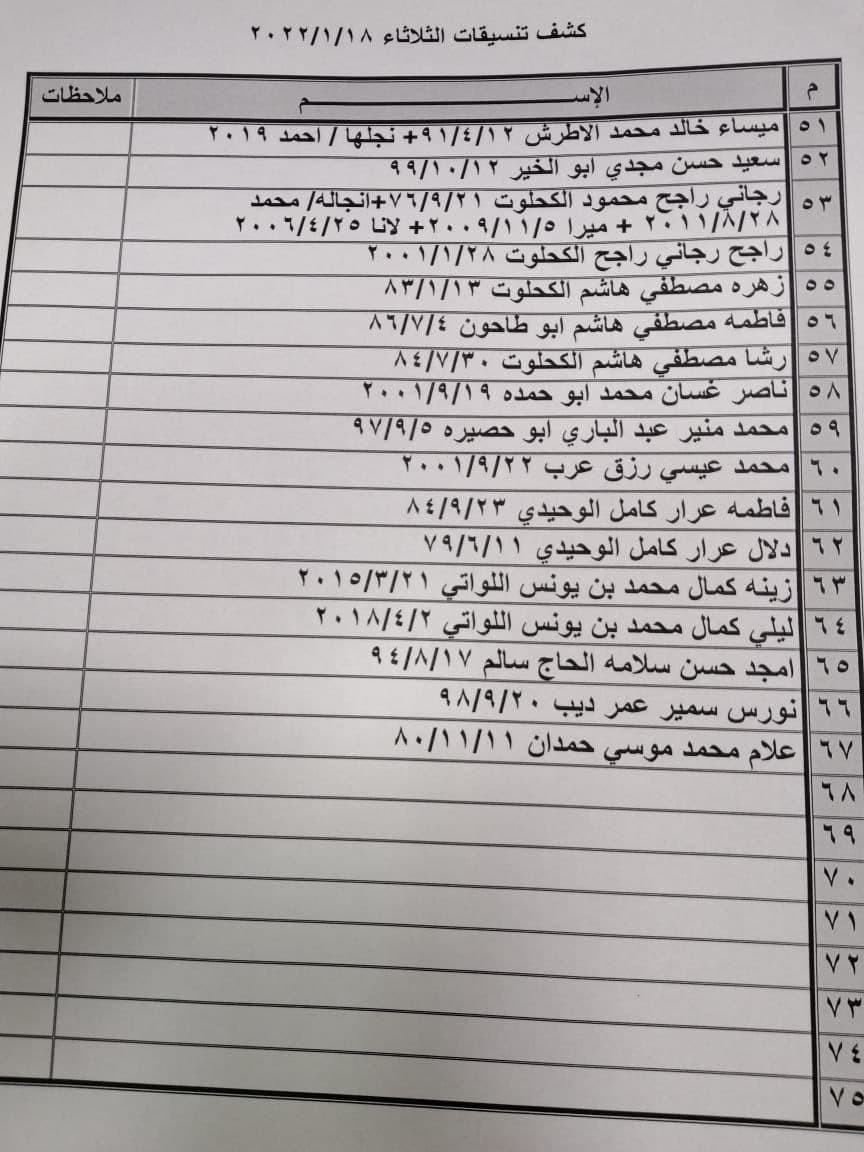 كشف تنسيقات الثلاثاء ٢٠٢٢/١/١٨
م الإســــــــــــــم ملاحظات
٥١ ميساء خالد محمد الاطرش ٩١/٤/١٢+ نجلها / احمد ٢٠١٩
٥٢ سعيد حسن مجدي ابو الخير ٩٩/١٠/١٢
٥٣ رجاني راجح محمود الكحلوت ٧٦/٩/٢١+انجاله/ محمد
٢٠١١/٨/٢٨ + ميرا ٢٠٠٩/١١/٥+ لانا ٢٠٠٦/٤/٢٥
٥٤ راجح رجاني راجح الكحلوت ٢٠٠١/١/٢٨
٥٥ زهره مصطفي هاشم الكحلوت ٨٣/١/١٣
٥٦ فاطمه مصطفي هاشم ابو طاحون ٨٦/٧/٤
٥٧ رشا مصطفي هاشم الكحلوت ٨٤/٧/٣٠
٥٨ ناصر غسان محمد ابو حمده ٢٠٠١/٩/١٩
٥٩ محمد منير عبد الباري ابو حصيره ٩٧/٩/٥
٦٠ محمد عيسي رزق عرب ٢٠٠١/٩/٢٢
٦١ فاطمه عرار كامل الوحيدي ٨٤/٩/٢٣
٦٢ دلال عرار كامل الوحيدي ٧٩/٦/١١
٦٣ زينه كمال محمد بن يونس اللواتي ٢٠١٥/٣/٢١
٦٤ ليلي كمال محمد بن يونس اللواتي ٢٠١٨/٤/٢
٦٥ امجد حسن سلامه الحاج سالم ٩٤/٨/١٧
٦٦ نورس سمير عمر ديب ٩٨/٩/٢٠
٦٧ علام محمد موسي حمدان ٨٠/١١/١١
٦٨
٦٩
٧٠
٧١
٧٢
٧٣
٧٤
٧٥